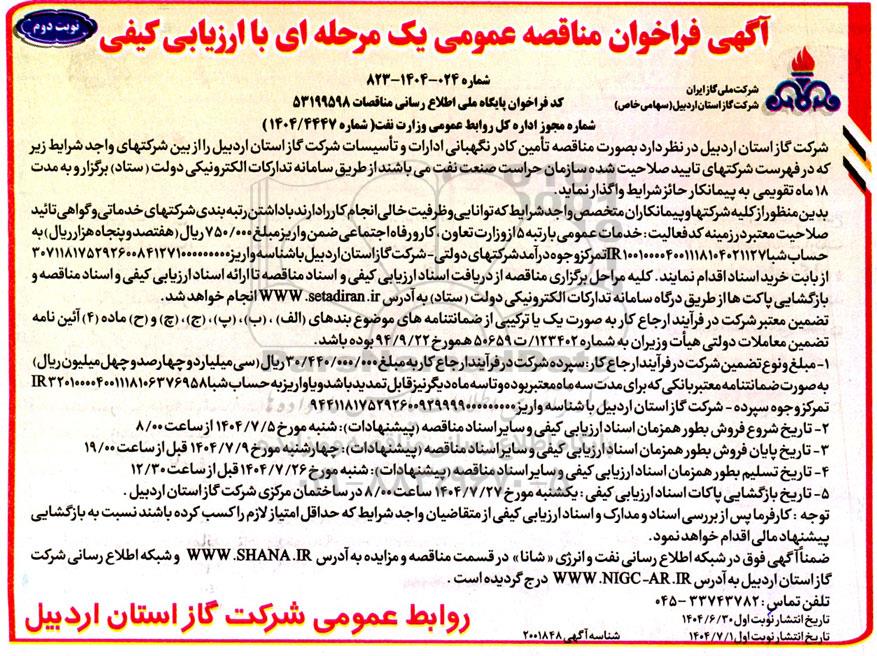 نوبت دوم
آگهی فراخوان مناقصه عمومی یک مرحله ای با ارزیابی کیفی
شماره ۰۲۴-۱۴۰۴-۸۲۳
شرکت ملی گاز ایران
شرکت گاز استان اردبیل (سهامی خاص)
کد فراخوان پایگاه ملی اطلاع رسانی مناقصات ۵۳۱۹۹۵۹۸
شماره مجوز اداره کل روابط عمومی وزارت نفت (شماره ۱۴۰۴/۴۴۴۷)
شرکت گاز استان اردبیل در نظر دارد بصورت مناقصه تأمین کادر نگهبانی ادارات و تأسیسات شرکت گاز استان اردبیل را از بین شرکتهای واجد شرایط زیر
که در فهرست شرکتهای تایید صلاحیت شده سازمان حراست صنعت نفت می باشند از طریق سامانه تدارکات الکترونیکی دولت (ستاد) برگزار و به مدت
۱۸ ماه تقویمی به پیمانکار حائز شرایط واگذار نماید.
بدین منظور از کلیه شرکتها و پیمانکاران متخصص واجد شرایط که توانایی و ظرفیت خالی انجام کار را دارند با داشتن رتبه بندی شرکتهای خدماتی و گواهی تائید
صلاحیت معتبر در زمینه کد فعالیت : خدمات عمومی با رتبه ۵ از وزارت تعاون ، کار و رفاه اجتماعی ضمن واریز مبلغ ۷۵۰/۰۰۰ ریال (هفتصد و پنجاه هزار ریال) به
حساب شبا IR۱۰۰۱۰۰۰۰۴۰۰۱۱۱۸۱۰۴۰۲۱۱۲۷ تمرکز وجوه درآمد شرکتهای دولتی - شرکت گاز استان اردبیل با شناسه واریز ۳۰۷۱۱۸۱۷۵۲۹۲۶۰۰۸۴۱۲۷۱۰۰۰۰۰۰۰۰۰
از بابت خرید اسناد اقدام نمایند. کلیه مراحل برگزاری مناقصه از دریافت اسناد ارزیابی کیفی و اسناد مناقصه تا ارائه اسناد ارزیابی کیفی و اسناد مناقصه و
بازگشایی پاکت ها از طریق درگاه سامانه تدارکات الکترونیکی دولت (ستاد) به آدرس WWW.setadiran.ir انجام خواهد شد.
تضمین معتبر شرکت در فرآیند ارجاع کار به صورت یک یا ترکیبی از ضمانتنامه های موضوع بندهای (الف) ، (ب)، (پ)، (ج)، (چ) و (ح) ماده (۴) آئین نامه
تضمین معاملات دولتی هیأت وزیران به شماره ۱۲۳۴۰۲/ت ۵۰۶۵۹ه مورخ ۹۴/۹/۲۲ بوده باشد.
۱- مبلغ و نوع تضمین شرکت در فرآیند ارجاع کار : سپرده شرکت در فرآیند ارجاع کار به مبلغ ۳۰/۴۴۰/۰۰۰/۰۰۰ ریال (سی میلیارد و چهارصد و چهل میلیون ریال)
به صورت ضمانتنامه معتبر بانکی که برای مدت سه ماه معتبر بوده و تا سه ماه دیگر نیز قابل تمدید باشد و یا واریز به حساب شبا IR۳۲۰۱۰۰۰۰۴۰۰۱۱۱۸۱۰۶۳۷۶۹۵۸
تمرکز وجوه سپرده - شرکت گاز استان اردبیل با شناسه واریز ۹۴۴۱۱۸۱۷۵۲۹۲۶۰۰۹۲۹۹۹۹۰۰۰۰۰۰۰۰۰
۲- تاریخ شروع فروش بطور همزمان اسناد ارزیابی کیفی و سایر اسناد مناقصه (پیشنهادات): شنبه مورخ ۱۴۰۴/۷/۵ از ساعت ۸/۰۰
۳- تاریخ پایان فروش بطور همزمان اسناد ارزیابی کیفی و سایر اسناد مناقصه (پیشنهادات): چهارشنبه مورخ ۱۴۰۴/۷/۹ قبل از ساعت ۱۹/۰۰
۴- تاریخ تسلیم بطور همزمان اسناد ارزیابی کیفی و سایر اسناد مناقصه (پیشنهادات): شنبه مورخ ۱۴۰۴/۷/۲۶ قبل از ساعت ۱۲/۳۰
۵- تاریخ بازگشایی پاکات اسناد ارزیابی کیفی : یکشنبه مورخ ۱۴۰۴/۷/۲۷ ساعت ۸/۰۰ در ساختمان مرکزی شرکت گاز استان اردبیل .
توجه : کارفرما پس از بررسی اسناد و مدارک و اسناد ارزیابی کیفی از متقاضیان واجد شرایط که حداقل امتیاز لازم را کسب کرده باشند نسبت به بازگشایی
پیشنهاد مالی اقدام خواهد نمود.
ضمناً آگهی فوق در شبکه اطلاع رسانی نفت و انرژی «شانا» در قسمت مناقصه و مزایده به آدرس WWW.SHANA.IR و شبکه اطلاع رسانی شرکت
گاز استان اردبیل به آدرس WWW.NIGC-AR.IR درج گردیده است .
تلفن تماس : ۳۳۷۴۳۷۸۲ - ۰۴۵
تاریخ انتشار نوبت اول ۱۴۰۴/۶/۳۰
تاریخ انتشار نوبت اول ۱۴۰۴/۷/۱
شناسه آگهی ۲۰۰۱۸۴۸
روابط عمومی شرکت گاز استان اردبیل